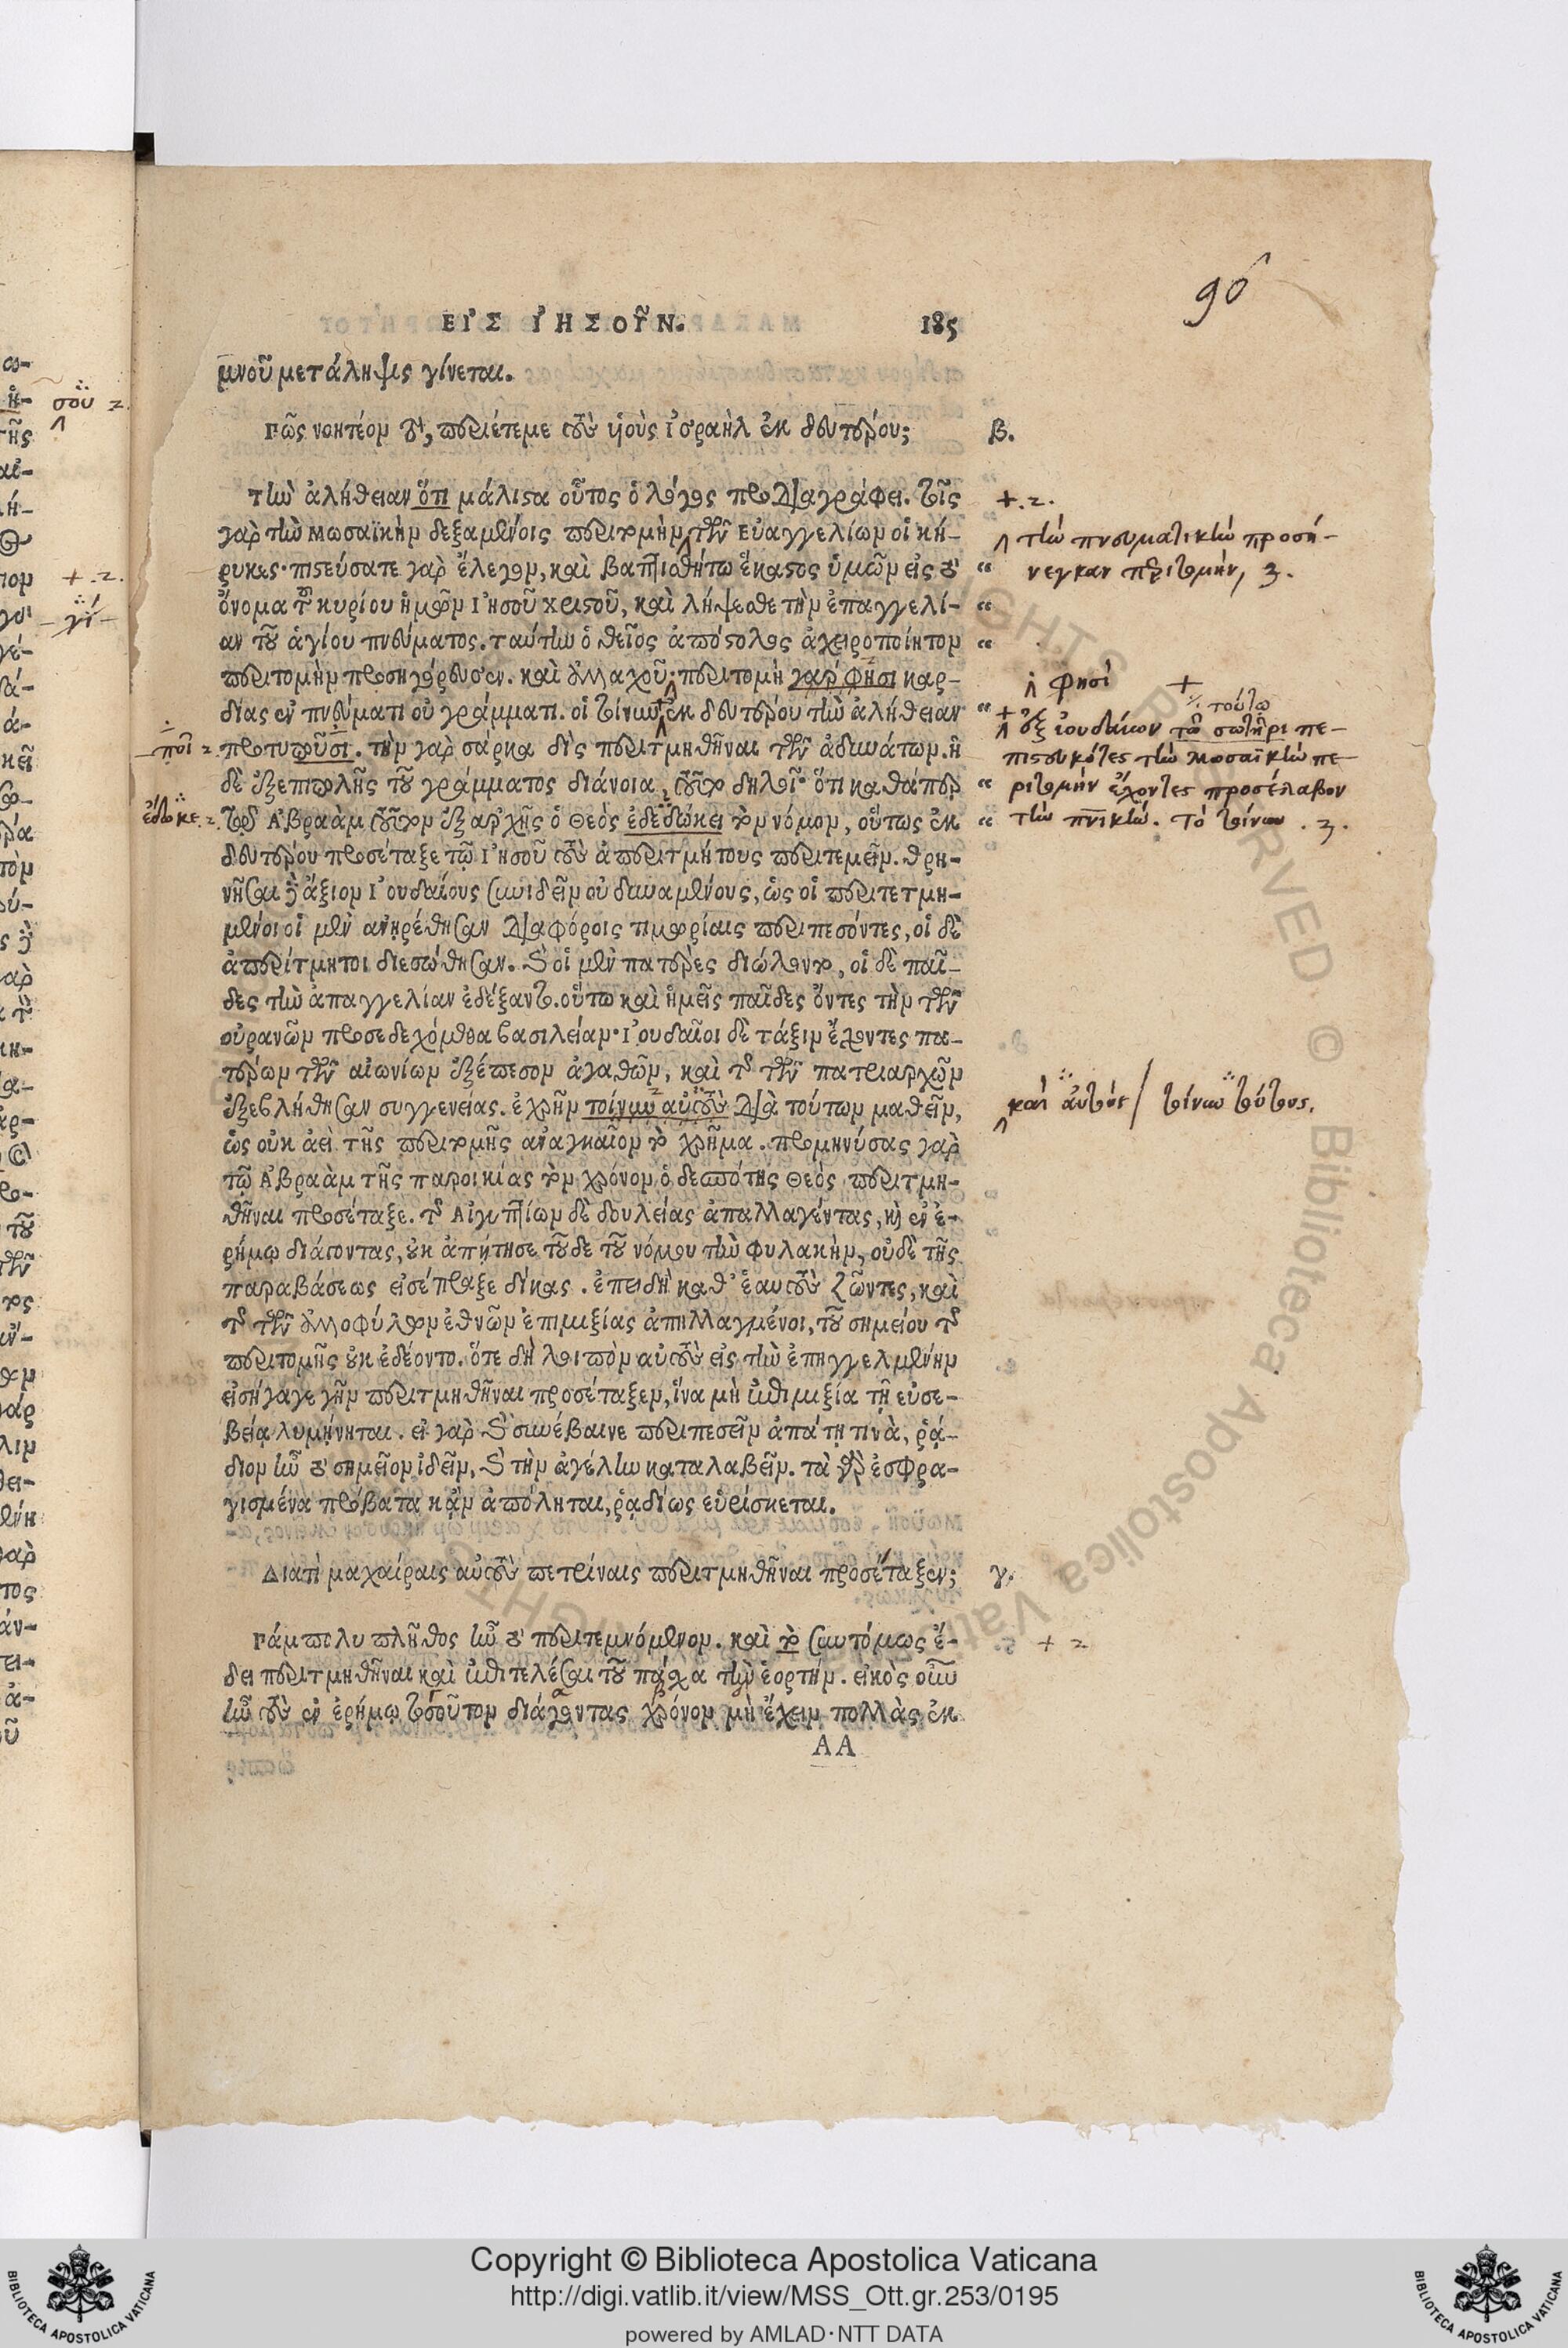 90
ΕΙ᾿Σ Ι᾿ΗΣΟΥ͂Ν.
185
μνοῦ μετάληψις γίνεται.
Πῶς νοητέον τὸ, περιέτεμε τοὺς υἱοὺς Ἰσραὴλ ἐκ δευτέρου;
β.
τὴν ἀλήθειαν ὅτι μάλιστα οὗτος ὁ λόγος προδιαγράφει. τοῖς
γὰρ τὴν Μωσαϊκὴν δεξαμένοις περιτομὴν τῶν Εὐαγγελίων οἱ κή-
ρυκες· πιστεύσατε γὰρ ἔλεγον, καὶ βαπτισθήτω ἕκαστος ὑμῶν εἰς τὸ
ὄνομα τοῦ κυρίου ἡμῶν Ἰησοῦ Χριστοῦ, καὶ λήψεσθε τὴν ἐπαγγελί-
αν τοῦ ἁγίου πνεύματος. ταύτην ὁ θεῖος ἀπόστολος ἀχειροποίητον
περιτομὴν προσηγόρευσεν. καὶ ἀλλαχοῦ· περιτομὴ γάρ φησι καρ-
δίας ἐν πνεύματι οὐ γράμματι. οἱ τοίνυν ἐκ δευτέρου τὴν ἀλήθειαν
προτυποῦσι. τὴν γὰρ σάρκα δὶς περιτμηθῆναι τῶν ἀδυνάτων. ἡ
δὲ ἐξεπιπολῆς τοῦ γράμματος διάνοια, τοῦτο δηλοῖ· ὅτι καθάπερ
τῷ Ἀβραὰμ τοῦτον ἐξ ἀρχῆς ὁ Θεὸς ἐδεδώκει τὸν νόμον, οὕτως ἐκ
δευτέρου προσέταξε τῷ Ἰησοῦ τοὺς ἀπεριτμήτους περιτεμεῖν. θρη-
νῆσαι δὲ ἄξιον Ἰουδαίους συνιδεῖν οὐ δυναμένους, ὡς οἱ περιτετμη-
μένοι οἱ μὲν ἀνῃρέθησαν διαφόροις τιμωρίαις περιπεσόντες, οἱ δὲ
ἀπερίτμητοι διεσώθησαν. καὶ οἱ μὲν πατέρες διώλοντο, οἱ δὲ παῖ-
δες τὴν ἀπαγγελίαν ἐδέξαντο. οὕτω καὶ ἡμεῖς παῖδες ὄντες τὴν τῶν
οὐρανῶν προσεδεχόμεθα βασιλείαν· Ἰουδαῖοι δὲ τάξιν ἔχοντες πα-
τέρων τῶν αἰωνίων ἐξέπεσον ἀγαθῶν, καὶ τῆς τῶν πατριαρχῶν
ἐξεβλήθησαν συγγενείας. ἐχρῆν τοίνυν αὐτοὺς διὰ τούτων μαθεῖν,
ὡς οὐκ ἀεὶ τῆς περιτομῆς ἀναγκαῖον τὸ χρῆμα. προμηνύσας γὰρ
τῷ Ἀβραὰμ τῆς παροικίας τὸν χρόνον ὁ δεσπότης Θεὸς περιτμη-
θῆναι προσέταξε. τῆς Αἰγυπτίων δὲ δουλείας ἀπαλλαγέντας, καὶ ἐν ἐ-
ρήμῳ διάγοντας, οὐκ ἀπῄτησε τοῦδε τοῦ νόμου τὴν φυλακὴν, οὐδὲ τῆς
παραβάσεως εἰσέπραξε δίκας. ἐπειδὴ καθ᾽ ἑαυτοὺς ζῶντες, καὶ
τῆς τῶν ἀλλοφύλων ἐθνῶν ἐπιμιξίας ἀπηλλαγμένοι, τοῦ σημείου τῆς
περιτομῆς οὐκ ἐδέοντο. ὅτε δὴ λοιπὸν αὐτοὺς εἰς τὴν ἐπηγγελμένην
εἰσήγαγε γῆν περιτμηθῆναι προσέταξεν, ἵνα μὴ ἐπιμιξία τῇ εὐσε-
βείᾳ λυμήνηται. εἰ γὰρ καὶ συνέβαινε περιπεσεῖν ἀπάτῃ τινὰ, ῥᾴ-
διον ἦν τὸ σημεῖον ἰδεῖν, καὶ τὴν ἀγέλην καταλαβεῖν. τὰ γὰρ ἐσφρα-
γισμένα πρόβατα κἂν ἀπόληται, ῥᾳδίως εὑρίσκεται.
Διατί μαχαίραις αὐτοὺς πετρίναις περιτμηθῆναι προσέταξεν;
γ.
Πάμπολυ πλῆθος ἦν τὸ περιτεμνόμενον. καὶ τὸ συντόμως ἔ-
δει περιτμηθῆναι καὶ ἐπιτελέσαι τοῦ πάσχα τὴν ἑορτήν. εἰκὸς οὖν
ἦν τοὺς ἐν ἐρήμῳ τοσοῦτον διάγοντας χρόνον μὴ ἔχειν πολλὰς ἐκ
AA
+ .2.
τὴν πνευματικὴν προσή-
νεγκαν περιτομήν, 3.
φησί
+
τούτῳ
ἐξ ἰουδαίων τῷ σωτῆρι πε-
πιστευκότες τὴν μωσαϊκὴν πε-
ριτομὴν ἔχοντες προσέλαβον
τὴν πνικήν. τὸ τοίνυν .3.
ποῖ 2.
ἔδωκε. 2.
καὶ αὐτοὺς / τοίνυν τούτους.
+ 2
σοῦ 2.
+ .2.
Copyright © Biblioteca Apostolica Vaticana
http://digi.vatlib.it/view/MSS_Ott.gr.253/0195
powered by AMLAD·NTT DATA